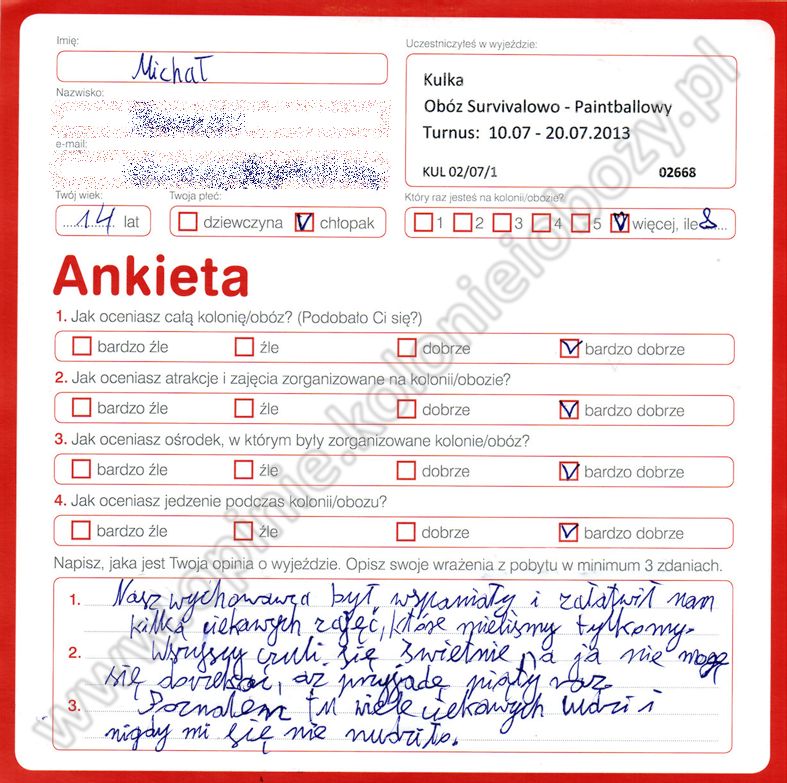 Imię:
Michał
Uczestniczyłeś w wyjeździe:
Kulka
Obóz Survivalowo - Paintballowy
Turnus: 10.07 - 20.07.2013
KUL 02/07/1 02668
Nazwisko:
e-mail:
Twój wiek:
14 lat
Twoja płeć:
dziewczyna chłopak
Który raz jesteś na kolonii/obozie?
1 2 3 4 5 więcej, ile 8
Ankieta
1. Jak oceniasz całą kolonię/obóz? (Podobało Ci się?)
bardzo źle źle dobrze bardzo dobrze
2. Jak oceniasz atrakcje i zajęcia zorganizowane na kolonii/obozie?
bardzo źle źle dobrze bardzo dobrze
3. Jak oceniasz ośrodek, w którym były zorganizowane kolonie/obóz?
bardzo źle źle dobrze bardzo dobrze
4. Jak oceniasz jedzenie podczas kolonii/obozu?
bardzo źle źle dobrze bardzo dobrze
Napisz, jaka jest Twoja opinia o wyjeździe. Opisz swoje wrażenia z pobytu w minimum 3 zdaniach.
1. Nasz wychowawca był wspaniały i załatwił nam
kilka ciekawych zajęć, które mieliśmy tylko my.
2. Wszyscy czuli się świetnie, a ja nie mogę
się doczekać, aż przyjadę piąty raz.
3. Poznałem tu wiele ciekawych ludzi i
nigdy mi się nie nudziło.
www.opinie.kolonieiobozy.pl